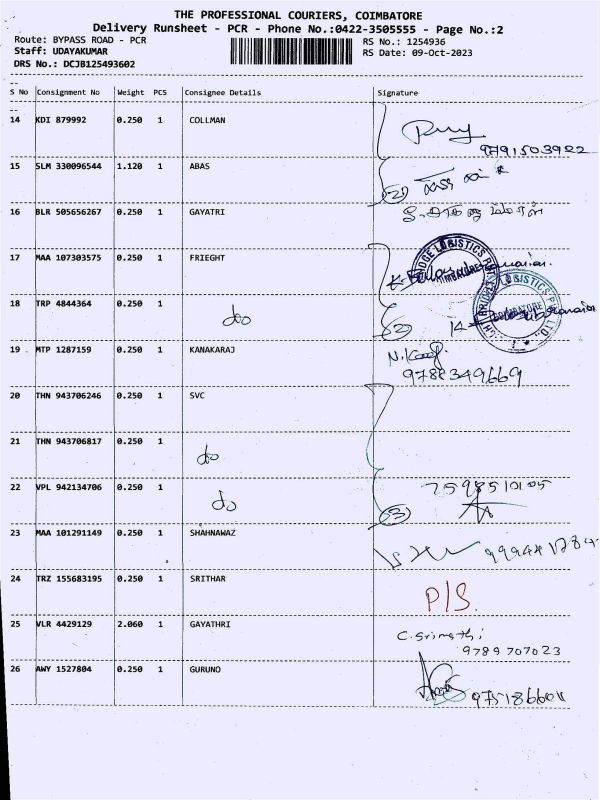 THE PROFESSIONAL COURIERS, COIMBATORE
Delivery Runsheet - PCR - Phone No.:0422-3505555 - Page No.:2
Route: BYPASS ROAD - PCR
RS No.: 1254936
Staff: UDAYAKUMAR
RS Date: 09-Oct-2023
DRS No.: DCJB125493602
S No Consignment No Weight PCS Consignee Details Signature
14 KDI 879992 0.250 1 COLLMAN
9791503922
15 SLM 330096544 1.120 1 ABAS
(2)
16 BLR 505656267 0.250 1 GAYATRI
17 MAA 107303575 0.250 1 FRIEGHT
18 TRP 4844364 0.250 1 do
(2)
19 MTP 1287159 0.250 1 KANAKARAJ
20 THN 943706246 0.250 1 SVC
21 THN 943706817 0.250 1 do
22 VPL 942134706 0.250 1 do
(3)
23 MAA 101291149 0.250 1 SHAHNAWAZ
24 TRZ 155683195 0.250 1 SRITHAR P/S.
25 VLR 4429129 2.060 1 GAYATHRI C. Srimathi
9789707023
26 AWY 1527804 0.250 1 GURUNO